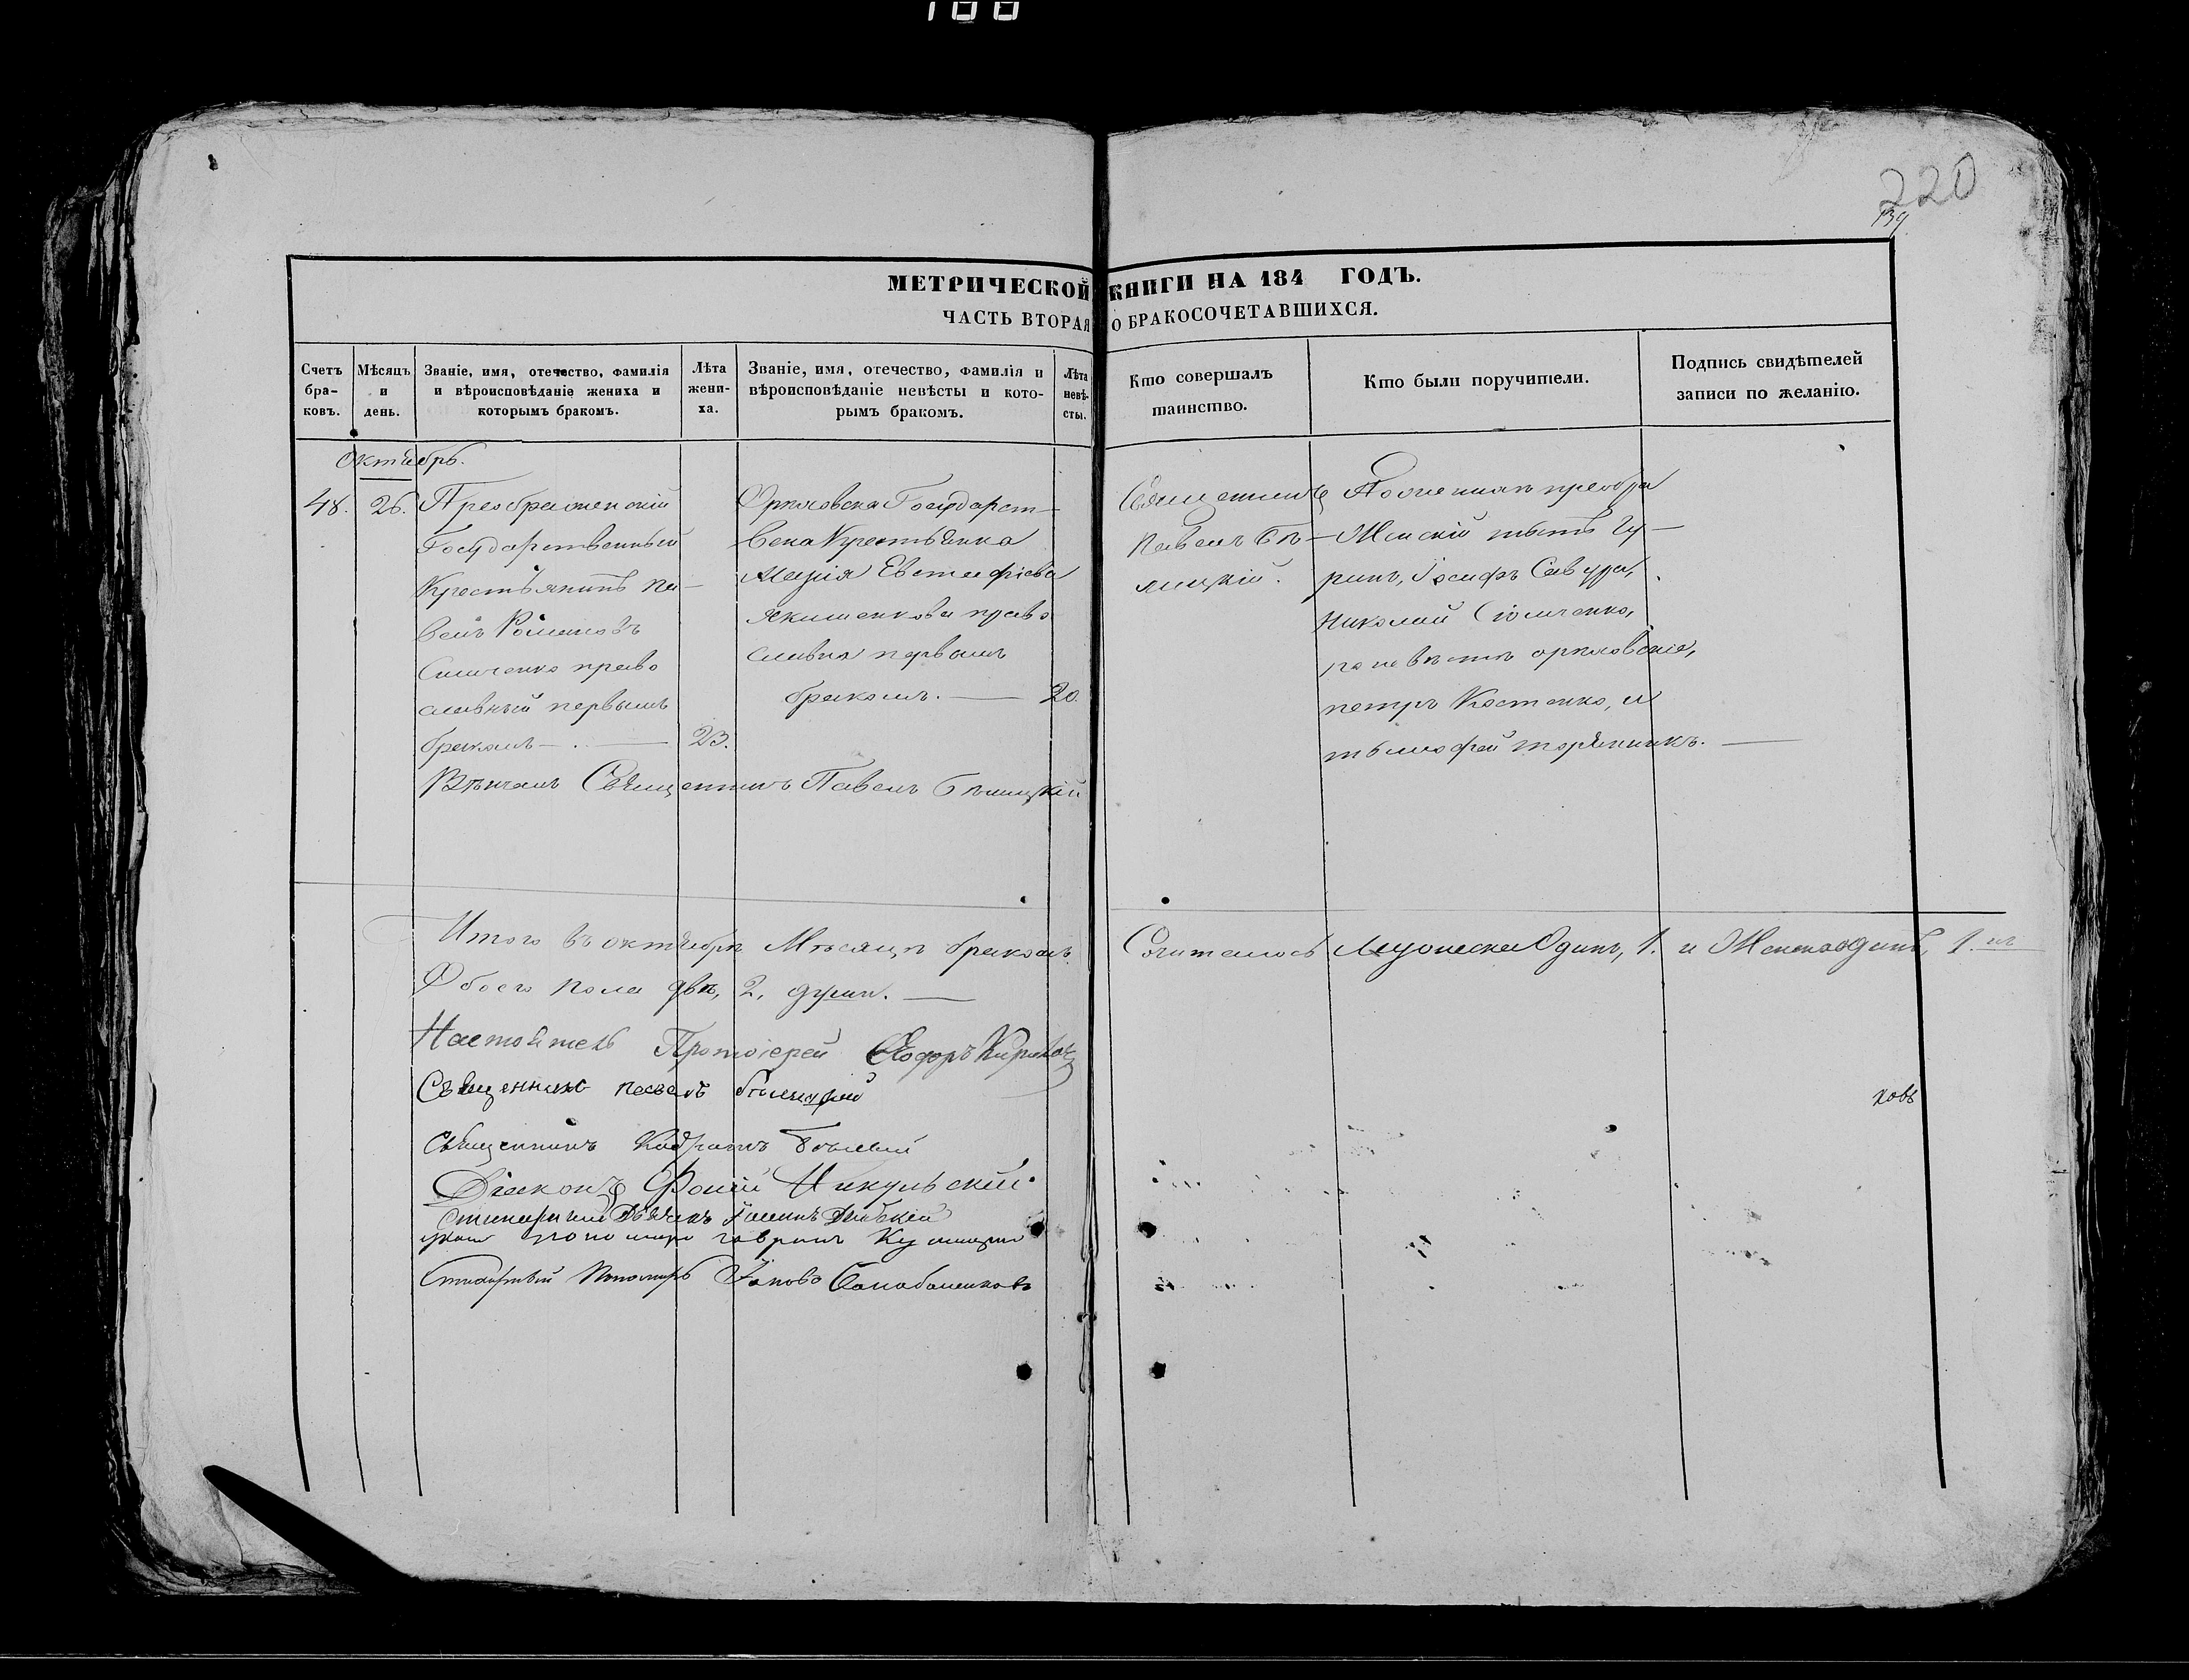 188
220
139
МЕТРИЧЕСКОЙ КНИГИ НА 184 ГОДЪ.
ЧАСТЬ ВТОРАЯ О БРАКОСОЧЕТАВШИХСЯ.
Счетъ бра-ковъ.
Мѣсяцъ и день.
Званіе, имя, отечество, фамилія и вѣроисповѣданіе жениха и которымъ бракомъ.
Лѣта жени-ха.
Званіе, имя, отечество, фамилія и вѣроисповѣданіе невѣсты и кото-рымъ бракомъ.
Лѣта невѣ-сты.
Кто совершалъ таинство.
Кто были поручители.
Подпись свидѣтелей записи по желанію.
Октябрь.
48. 26.
Преображенскій
Государственный
Крестьянинъ Па-
велъ Романовъ
право
славный первымъ
бракомъ — . — 23.
Орѣховска Государст-
вена Крестьянка
Марія Евстафіева
Якименкова право
славна первымъ
бракомъ. — 20.
Священникъ
Павелъ Бѣ-
лицкій.
По женихѣ преобра
Женскій
Іосифъ Савура,
Николай
по невѣстѣ орѣховскіе,
петръ Костенко, и
Вѣнчалъ Священникъ Павелъ Бѣлицкій
Итого въ октябрѣ Мѣсяцѣ бракомъ Сочиталось Мужеска Одинъ, 1. и Женска одинъ, 1. ит
Обоего пола двѣ, 2, души. —
Настоятель Протоіерей Ѳеодоръ
Священникъ павелъ бѣлицкій
ковъ
Священникъ
Діаконъ Никульскій
Гавріилъ
Стихарный Пономарь Яковъ